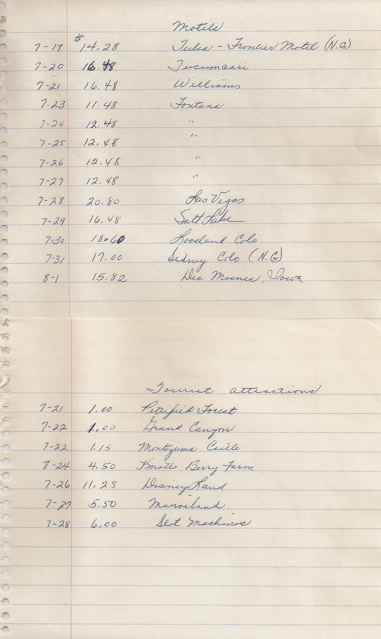 Motels
7-17 $14.28 Tulsa - Frontier Motel (N.G)
7-20 16.48 Tucumcari
7-21 16.48 Williams
7-23 11.48 Fontana
7-24 12.48 "
7-25 12.48 "
7-26 12.48 "
7-27 12.48 "
7-28 20.80 Las Vegas
7-29 16.48 Salt Lake
7-30 18.60 Loveland Colo
7-31 17.00 Sidney Colo (N.G)
8-1 15.82 Des Moines, Iowa
Tourist attractions
7-21 1.00 Petrified Forest
7-22 1.00 Grand Canyon
7-22 1.15 Montezuma Castle
7-24 4.50 Knotts Berry Farm
7-26 11.25 Disney Land
7-27 5.50 Marineland
7-28 6.00 Slot Machines